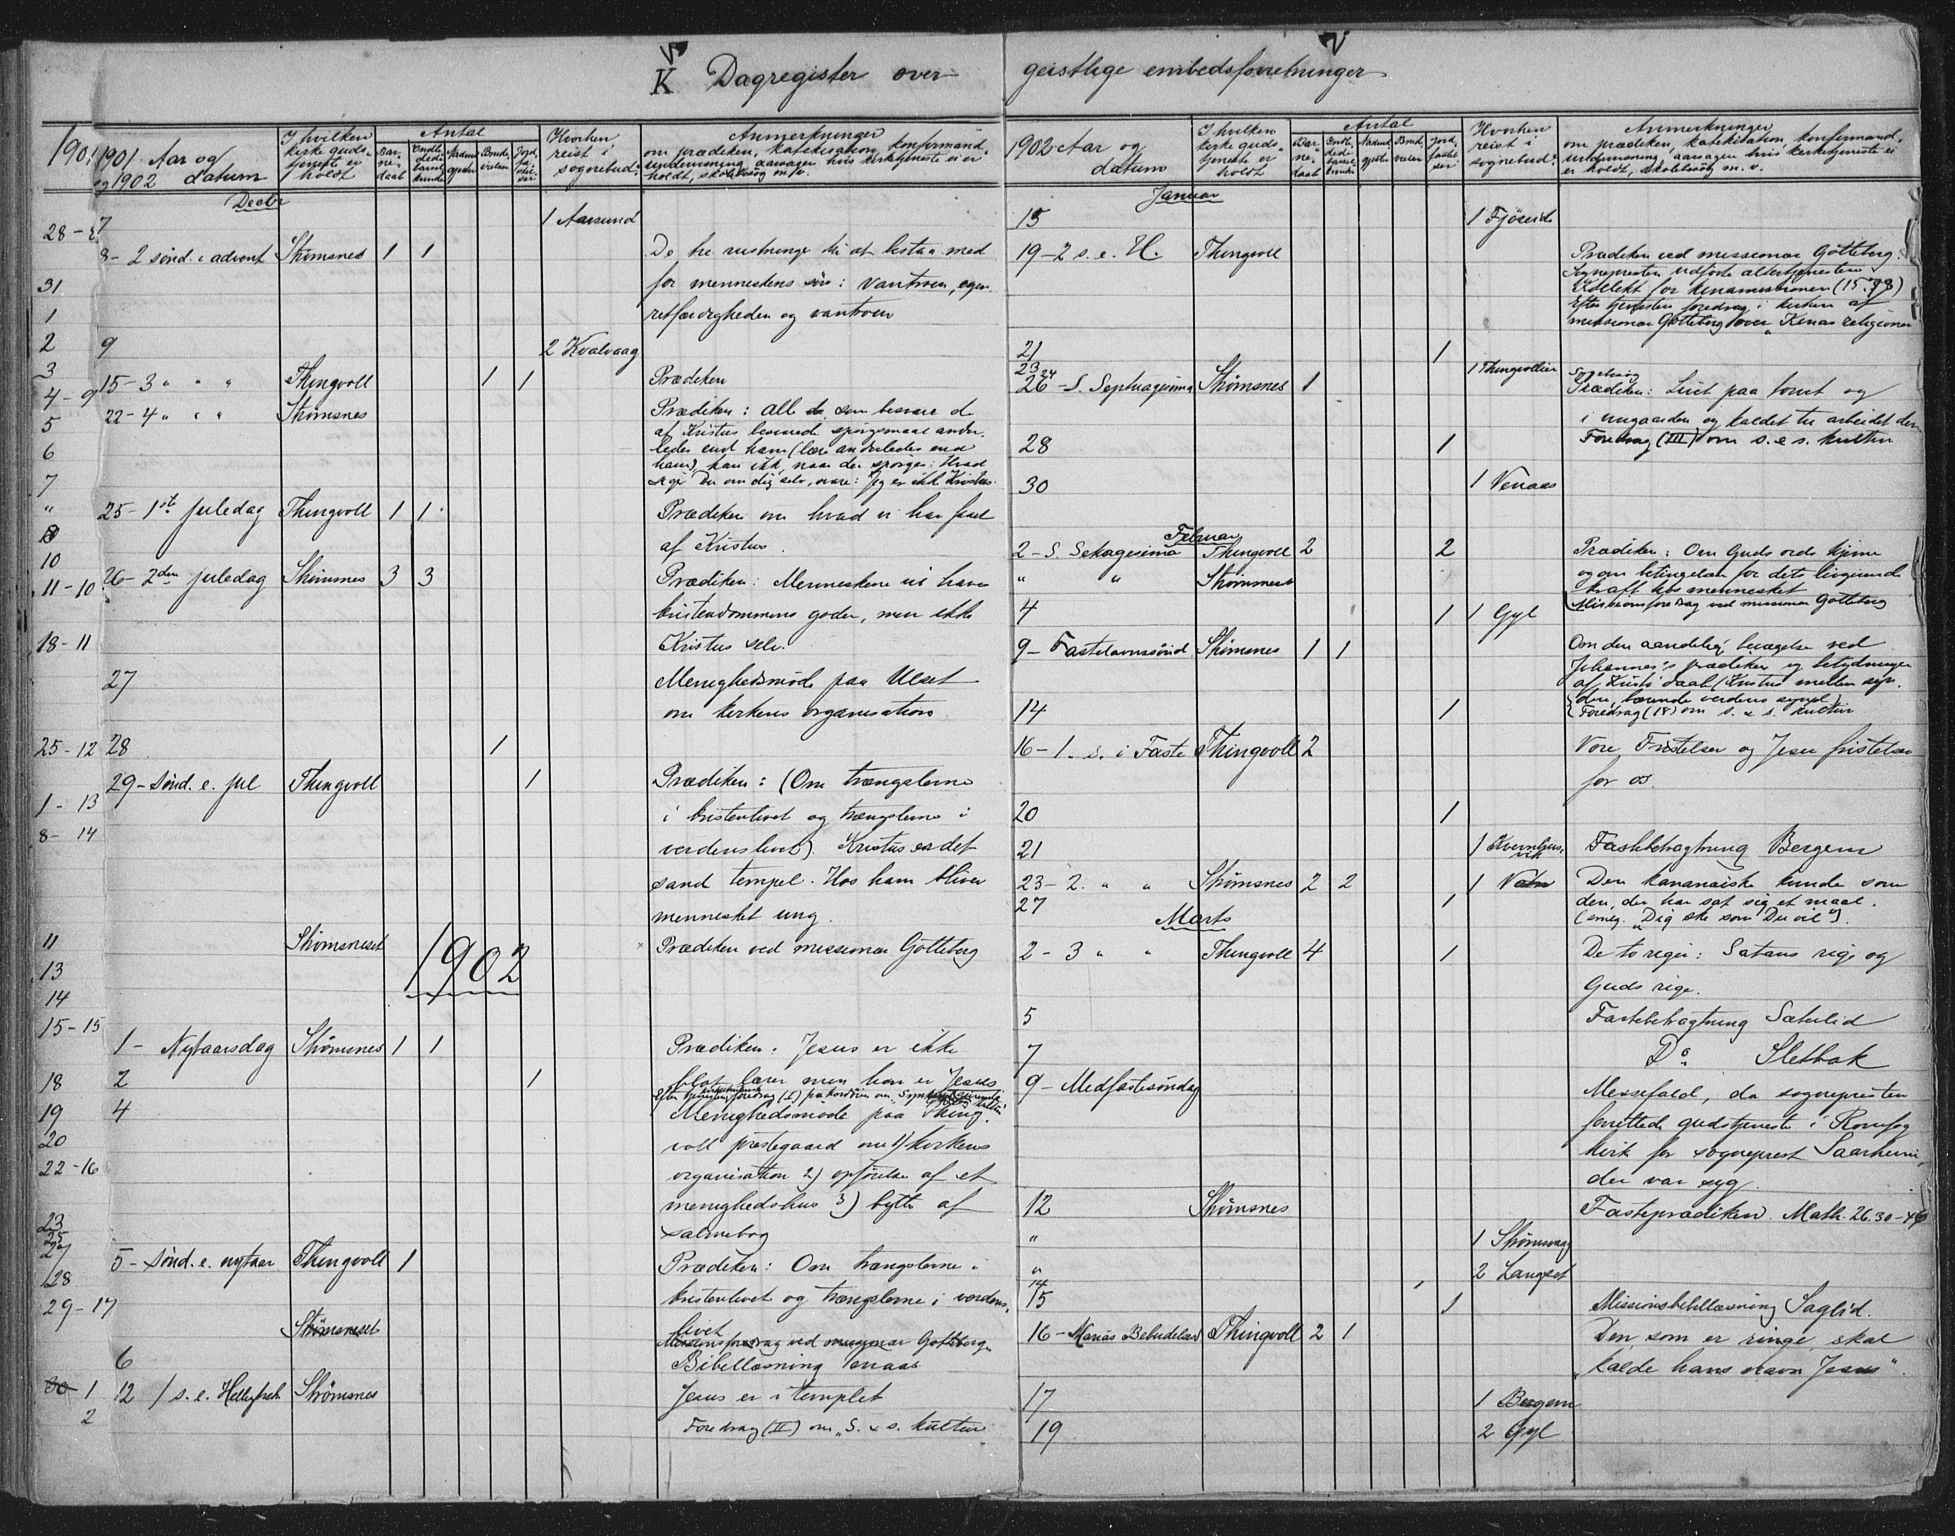 K. Dagregister over
1901
1901 Aar og
og 1902 datum
I hvilken kirke gudstjeneste er holdt
Antal
Barnedaab
Brudevielser
Hvorhen reist i sognebud
Anmerkninger
om prædiken, katekisation, konfirmand-
undervisning, aarsagen hvis kirketjeneste ei er
holdt, skolebesøg m. v.
Decbr
7 1 Aarsund
8 - 2 sønd. i advent Strømsnes 1 1 De tre rustninger til at bestaa med
for menneskens søn: Vantroen, egen-
retfærdigheden og vantroen
9 2 Kvalvaag
15 - 3 " " " Thingvoll 1 1 Prædiken
22 - 4 " " " Strømsnes Prædiken: Alle de som besvare de
af Kristus spørgsmaal ander-
ledes end ham (lære anderledes end
ham), kan ikke, naar der spørges: Hvad
siger Du om dig selv, svare: Jeg er ikke Kristus.
25 - 1st juledag Thingvoll 1 1 Prædiken om hvad vi har faaet
af Kristus.
26 - 2den juledag Strømsnes 3 3 Prædiken: Menneskene vil have
kristendommens goder, men ikke
Kristus selv.
27 Menighedsmøde paa Ulset
om kirkens organisation
28 1
29 - Sønd. e. jul Thingvoll 1 Prædiken: (Om trængslerne
i kristenlivet og trængslerne i
verdenslivet) Kristus er det
sand tempel. Hos ham bliver
mennesket ung.
Strømsneset Prædiken ved missionær Götteberg
1902
1 - Nytaarsdag Strømsnes 1 1 Prædiken: Jesus er ikke
blot lærer men han er Jesus
2 1
4 Menighedsmøde paa Thing-
voll præstegaard om 1) kirkens
organisation 2) opførelse af et
menighedshus 3) bytte af
salmebog
5 - Sønd. e. nytaar Thingvoll 1 Prædiken: Om trængslerne i
kristenlivet og trængslerne i verdens-
livet
Strømsneset Missionsforedrag ved missionær Götteberg
6 Bibellæsning Venaas
12 1 s. e. Hellig3k Strømsnes Jesus er i templet
Foredrag (II) om "S. & s. kultur
28 -
31
1
2
3
4 - 9
5
6
7
"
8
10
11 - 10
18 - 11
25 - 12
1 - 13
8 - 14
11
13
14
15 - 15
18
19
20
22 - 16
23
25
27
28
29 - 17
30 1
2
geistlige embedsforretninger
1902 Aar og
datum
I hvilken kirke gudstjeneste er holdt
Antal
Hvorhen reist i sognebud
Anmerkninger
om prædiken, katekisation, konfirmand-
undervisning, aarsagen hvis kirketjeneste ei
er holdt, skolebesøg m. v.
Januar
15 1 Fjøseid
19 - 2 s. e. H. Thingvoll Prædiken ved missionær Götteberg.
Sognepresten udførte altertjenesten
Kollekt for kinamissionen (15.98)
Efter tjenesten foredrag i kirken af
missionær Götteberg over "Kinas religioner
21 1
23 24 1 Thingvollien Sognebud
26 - S. Septuagesima Strømsnes 1 Prædiken: Livet paa torvet og
i vingaarden og kaldet til arbeidet der.
28 1 Foredrag (III) om s. & s. kultur
30 1 Venaas
Februar
2 - S. Seksagesima Thingvoll 2 2 Prædiken: Om Guds ords kjerne
og om betingelsen for dets livgivende
kraft hos mennesket
" " Strømsnes Missionsforedrag ved missionær Götteberg
4 1 1 Gyl
9 - Fastelavnssønd. Strømsnes 1 1 Om den aandelig bevægelse ved
Johannes's prædiken og betydningen
af Kristi daab (Kristus mellem syn-
dere, bærende verdens synd)
14 1 Foredrag (IV) om s. & s. kultur
16 - 1. s. i Faste Thingvoll 2 Vore Fristelser og Jesu fristelser
for os.
20 1
21 1 Kvernhusvik Fastebetragtning Bergem
23 - 2. " " Strømsnes 2 2 1 Vatn Den kananæiske kvinde som
den, der har sat sig et maal.
(smlg. "Dig ske som Du vil").
27 1
Marts
2 - 3 " " Thingvoll 4 1 De to riger: Satans rige og
Guds rige.
5 Fastebetragtning Sæterlid
7 Do Sletbak
9 - Midfastesøndag Messefald, da sognepresten
forrettede gudstjeneste i
kirke for sogneprest Saarheim,
der var syg.
12 Strømsnes Fasteprædiken. Math. 26.30-46
" 1 Strømsvaag
" 2 Langset
14
15 1 Missionsbibellæsning Saglid.
16 - Mariæ Bebudelse Thingvoll 2 1 Den, som er ringe, skal
"kalde hans navn Jesus".
17 1 Bergem
19 2 Gyl